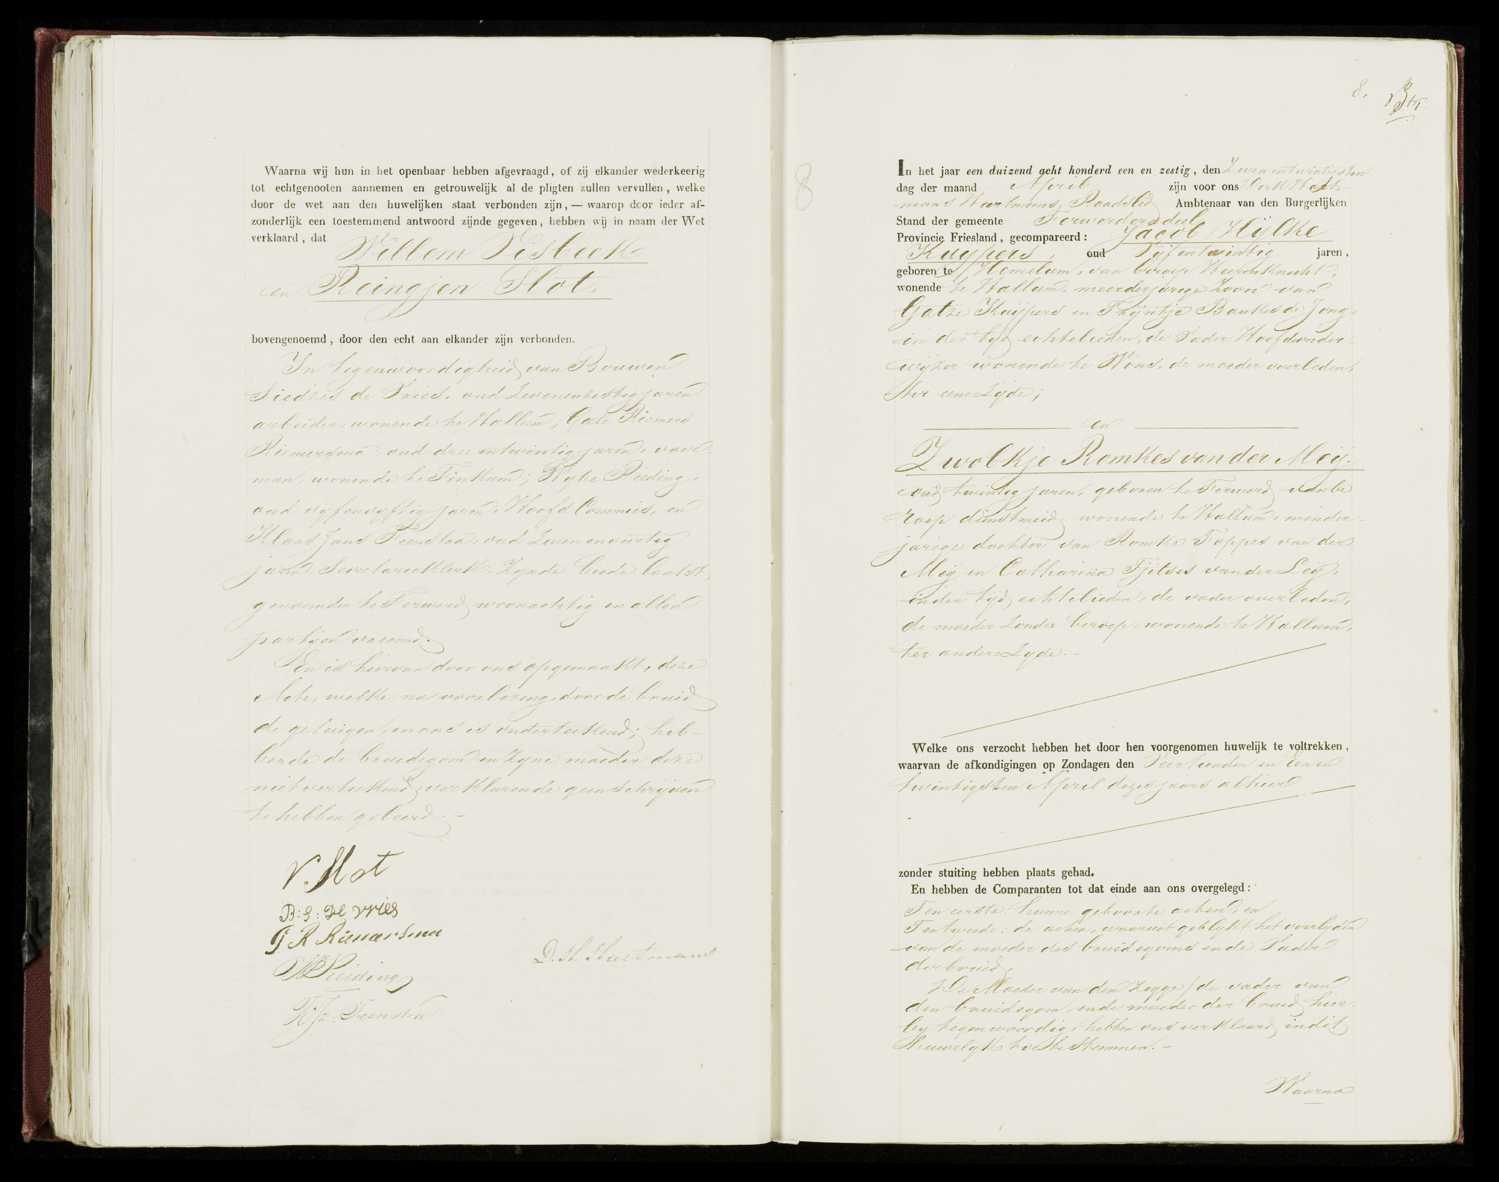 Waarna wij hun in het openbaar hebben afgevraagd, of zij elkander wederkeerig
tot echtgenooten aannemen en getrouwelijk al de pligten zullen vervullen, welke
door de wet aan den huwelijken staat verbonden zijn, — waarop door ieder af-
zonderlijk een toestemmend antwoord zijnde gegeven, hebben wij in naam der Wet
verklaard, dat
Willem Visbeek
en Reingjen Slot.
bovengenoemd, door den echt aan elkander zijn verbonden.
In tegenwoordigheid van Bouwen
de Vries, oud zevenenzestig jaren
arbeider wonende te Hallum,
Riemersma oud drie entwintig jaren, voer-
man, wonende te Finkum; Reiding,
oud vyfenvyftig jaren Hoofd Commies, en
Klaas Jans Feenstra oud zevenenveertig
jaren Secretarieklerk, zynde beide laatst-
genoemden te Ferwerd woonachtig en allen
partijen vreemd.
En is hiervan door ons opgemaakt, deze
Acte, welke na voorlezing, door de bruid
de getuigen en ons is onderteekend; heb-
bende de bruidegom en zyne moeder deze
niet verteekend, verklarende geen schrijven
te hebben geleerd. —
V. Slot
B: S: de vries
G R Riemersma
Reiding
K. Js. Feenstra
D. H. Hartmans
8.
8
In het jaar een duizend acht honderd een en zestig, den Zevenentwintigsten
dag der maand April zijn voor ons Dirk Hart-
mans Raadslid Ambtenaar van den Burgerlijken
Stand der gemeente Ferwerderadeel
Provincie Friesland, gecompareerd: Jacob Hijlke
Kuijpers, oud Vijfentwintig jaren,
geboren te Hemelum, van beroep Weversknecht,
wonende te Hallum, meerderjarige Zoon van
Gatze Kuijpers en Trijntje Baukes de Jong,
in der tyd echtelieden, de Vader Hoofdonder-
wijzer wonende te Wons, de moeder overleden,
ter eene zyde;
en
Zwolkje Romkes van der Meij.
oud twintig jaren, geboren te Ferwerd van be-
roep dienstmeid wonende te Hallum minder-
jarige dochter van Romke Foppes van der
Meij en Catharina Tjitses van der Leij,
in der tyd echtelieden, de vader overleden,
de moeder zonder beroep wonende te Hallum,
ter andere zyde. —
Welke ons verzocht hebben het door hen voorgenomen huwelijk te voltrekken,
waarvan de afkondigingen op Zondagen den Veertienden en een en
twintigsten April dezes jaars alhier
zonder stuiting hebben plaats gehad.
En hebben de Comparanten tot dat einde aan ons overgelegd:
Ten eerste: hunne geboorte acten, en
Ten tweede: de acten, waaruit geblykt het overlyden
van de moeder des bruidegoms en de Vader
der bruid,
De Moeder van den
den bruidegom, ende moeder der bruid, hier-
by tegenwoordig, hebben ons verklaard, in dit
Huwelyk toe te stemmen. —
Waarna